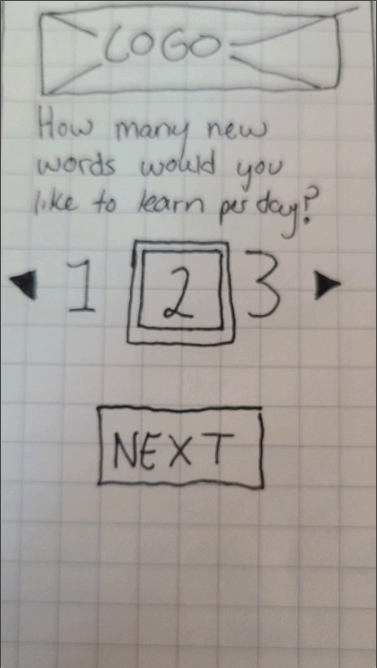 LOGO
How many new
words would you
like to learn per day?
1 2 3
NEXT